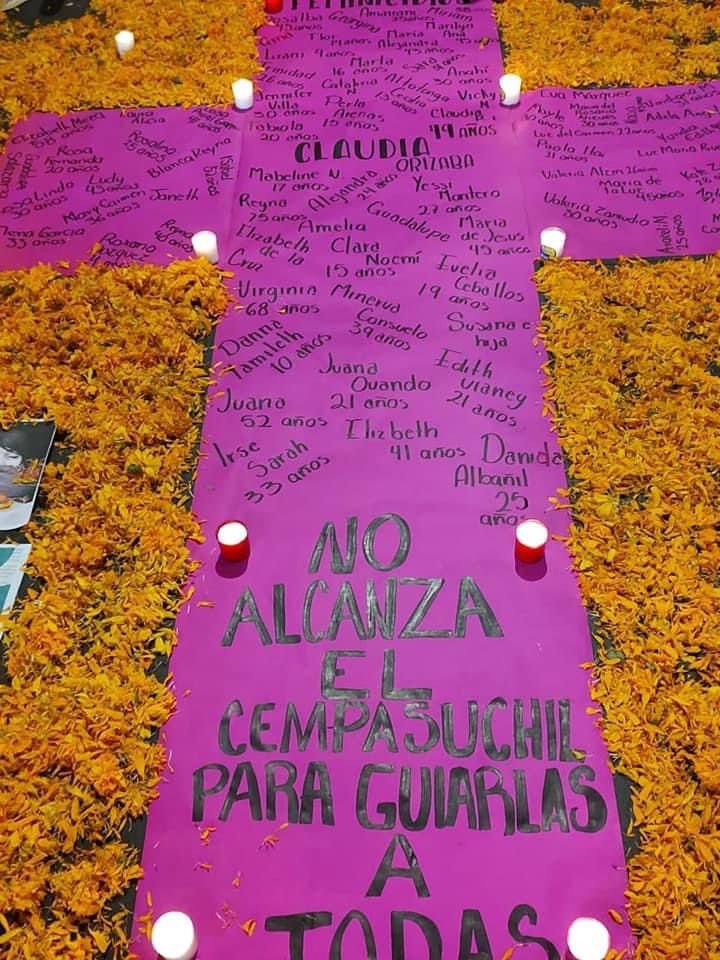 FEMINICIDIOS
Rosalba
Georgina
Amairani
Miriam
Marilyn
Flor
María
Ana
Alejandra
9 años
Marta
16 años
Anahí
30 años
Jennifer
Catalina
Vicky
Villa
30 años
Perla
Arenas
15 años
Cecilia
Claudia
Fabiola
20 años
49 años
CLAUDIA
ORIZABA
Mabeline N.
17 años
Alejandra
24 años
Yessi
Montero
27 años
Reyna
75 años
Amelia
Guadalupe
María
de Jesus
45 años
Elizabeth
de la
Cruz
Clara
Noemí
15 años
Evelia
Ceballos
19 años
Virginia
68 años
Minerva
Consuelo
39 años
Susana e
hija
Danna
Yamileth
10 años
Juana
Ovando
21 años
Edith
Vianey
21 años
Juana
52 años
Elizbeth
41 años
Irse
Sarah
33 años
Daniela
Albañil
25
años
Elizabeth Meza
58 años
Laura
Alicia
Rosa
Fernanda
20 años
Rosalino
75 años
Blanca Reyna
Rosa Linda
30 años
Ludy
45 años
Janeth
Mary Carmen
Elena García
33 años
Rosario
Vazquez
Reyna
Eva Márquez
María del
Rosario
Nieves
30 años
Viridiana M
Adela
Luz del Carmen 22 años
Paola Ila
21 años
Luz María
Valeria
María de
la Luz
Valeria Zamudio
30 años
Araceli M
25 años
NO
ALCANZA
EL
CEMPASUCHIL
PARA GUIARLAS
A
TODAS